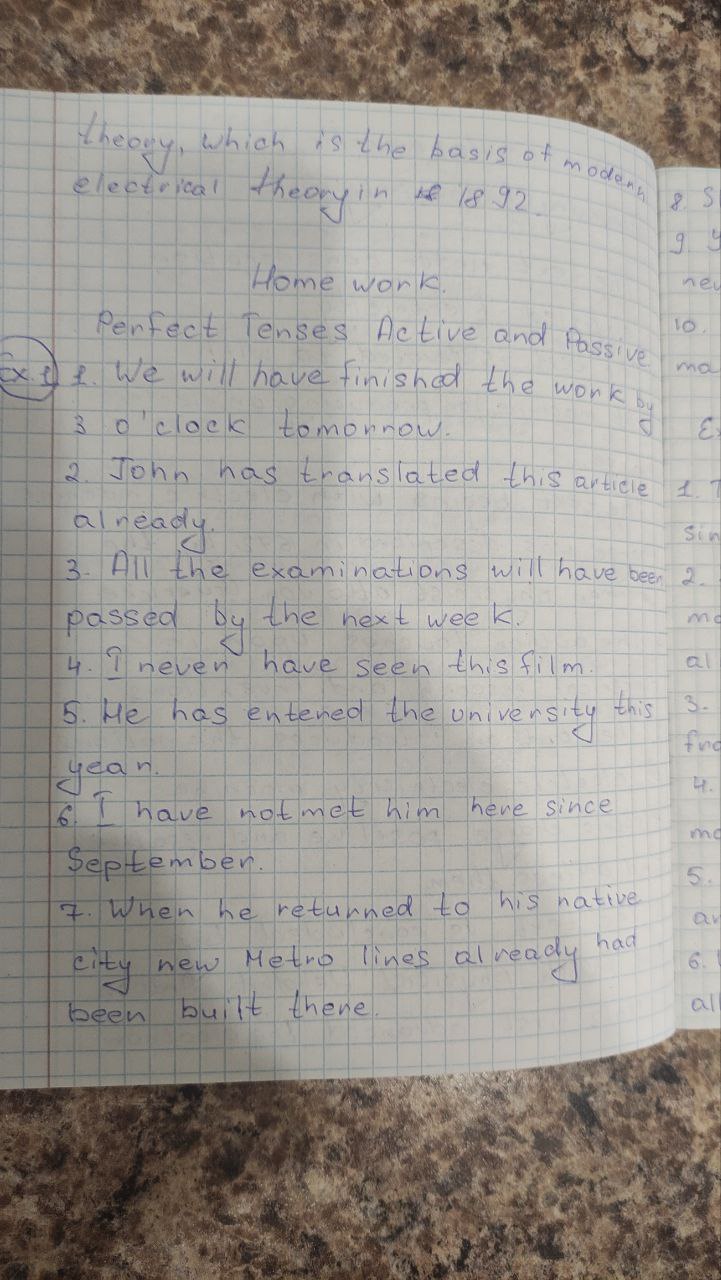 theory, which is the basis of modern
electrical theory in 1892.
Home work.
Perfect Tenses Active and Passive
Ex.1 1. We will have finished the work by
3 o'clock tomorrow.
2. John has translated this article
already.
3. All the examinations will have been
passed by the next week.
4. I never have seen this film.
5. He has entered the university this
year.
6. I have not met him here since
September.
7. When he returned to his native
city new Metro lines already had
been built there.
8. S
9 y
new
10.
ma
Ex
1. T
sin
2.
mo
al
3.
fro
4.
mo
5.
an
6.
al